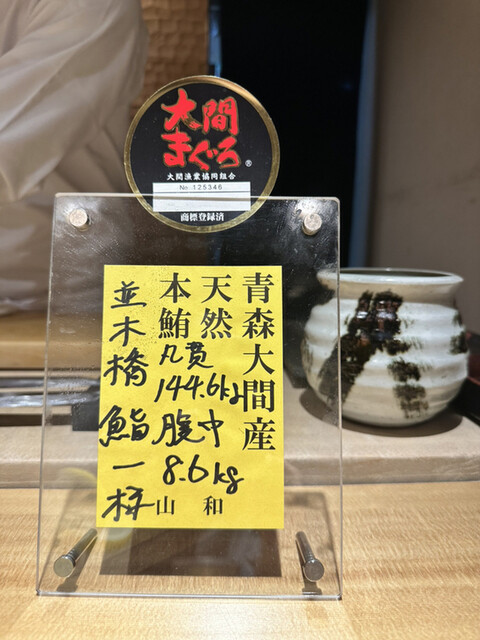 大間
まぐろ®
大間漁業協同組合
No 125346
商標登録済
青森大間産
天然
本鮪
144.6kg
腹中
8.6kg
山和
並木橋
鮨一